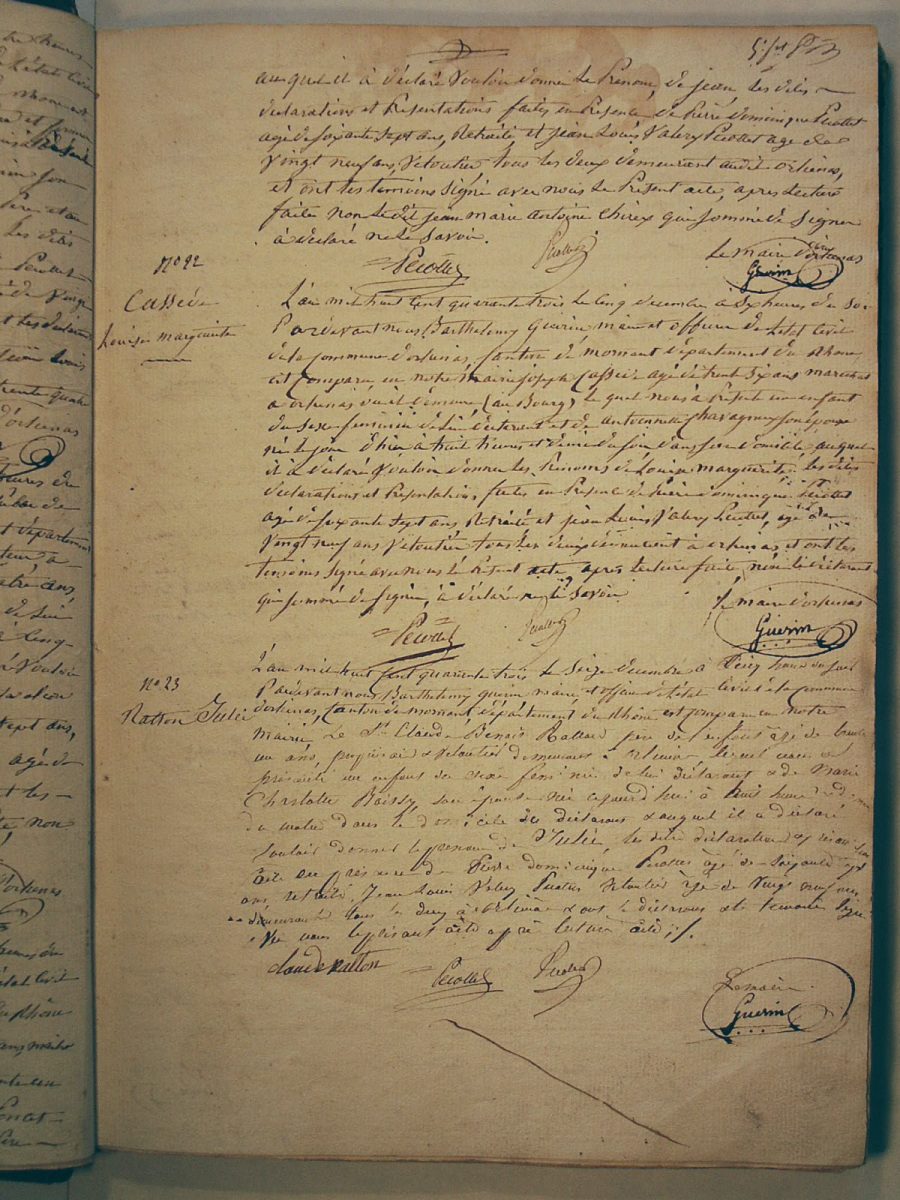 auquel il à déclaré Vouloir donner le Prénom, de jean, les dites
déclarations et Présentations faites en Présence de Pierre dominique Pecottet
agé de soixante sept ans, Retraité et jean Louis Valery Pecottet age de
Vingt neuf ans, Veloutier tous les deux demeurant audit orliénas,
et ont les temoins signé avec nous le Présent acte, après Lecture
faite non le dit jean marie antoine Chirex qui sommé de Signer
à déclaré ne le Savoir.
Le maire d'orliénas
Guerin
N° 22
Cassé de
Louise marguerite
L'an mil huit cent quarante trois le cinq decembre a six heures du Soir
Pardevant nous Barthelemy Guerin maire et officier de l'état Civil
de la commune d'orliénas, Canton de mornant département du Rhône
est comparu en notre Mairie joseph Cassé de agé de trente six ans marechal
a orliénas où il demeure (au Bourg) le quel nous à Présenté un enfant
du Sexe feminin de Lui déclarant et de antoinette Chavagneux son épouse
né le jour d'hier à huit heures et demie du soir dans son domicile, auquel
il à déclaré Vouloir donner les Prénoms de Louise marguerite, les dites
déclarations et Présentations, faites en Présence de Pierre dominique Pecottet
agé de soixante Sept ans, Retraité et jean Louis Valery Pecottet, agé de
Vingt neuf ans Veloutier tous les deux demeurant à orliénas, et ont les
temoins Signé avec nous le Présent acte, après Lecture faite, non le déclarant
qui sommé de Signer, à déclaré ne le Savoir
Le maire d'orliénas
Guerin
N° 23
Ratton Julie
L'an mil huit cent quarante trois le Seize decembre à Dix heures du
Pardevant nous Barthelemy Guerin maire et officier de l'état Civil de la commune
d'orliénas, Canton de mornant, département du Rhône est comparu en notre
mairie Le Sr Claude Benoit Ratton pere de l'enfant agé de trente
un ans, propriétaire & Veloutier demeurant a orliénas lequel nous a
présenté un enfant du sexe féminin de lui déclarant & de Marie
Charlotte Boissy, son épouse née ce jourd'hui à huit heures
du matin dans le domicile du déclarant & auquel il a déclaré
vouloir donner le prenom de Julie, les dites déclaration & présentation
faite en présence de Pierre dominique Pecottet agé de Soixante sept
ans, retraité, Jean Louis Valery Pecottet Veloutier age de Vingt neuf ans
demeurant tous les deux à orliénas & ont le déclarant & temoins signé
avec nous le présent acte après lecture faite ./.
claude ratton
Le maire
Guerin